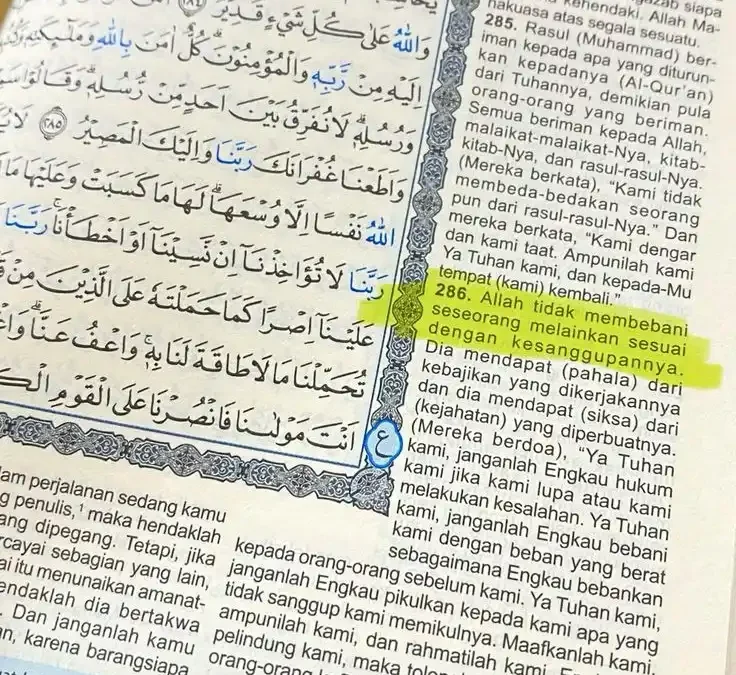 وَاللّٰهُ عَلٰى كُلِّ شَيْءٍ قَدِيْرٌ
اِلَيْهِ مِنْ رَّبِّهٖ وَالْمُؤْمِنُوْنَۗ كُلٌّ اٰمَنَ بِاللّٰهِ وَمَلٰۤىِٕكَتِهٖ
وَرُسُلِهٖۗ لَا نُفَرِّقُ بَيْنَ اَحَدٍ مِّنْ رُّسُلِهٖۗ وَقَالُوْا
وَاَطَعْنَا غُفْرَانَكَ رَبَّنَا وَاِلَيْكَ الْمَصِيْرُ ٢٨٥ لَا
اللّٰهُ نَفْسًا اِلَّا وُسْعَهَاۗ لَهَا مَا كَسَبَتْ وَعَلَيْهَا مَا
رَبَّنَا لَا تُؤَاخِذْنَآ اِنْ نَّسِيْنَآ اَوْ اَخْطَأْنَاۚ رَبَّنَا
عَلَيْنَآ اِصْرًا كَمَا حَمَلْتَهٗ عَلَى الَّذِيْنَ مِنْ
تُحَمِّلْنَا مَا لَا طَاقَةَ لَنَا بِهٖۚ وَاعْفُ عَنَّاۗ
اَنْتَ مَوْلٰىنَا فَانْصُرْنَا عَلَى الْقَوْمِ
ع
kehendaki. Allah Ma-
hakuasa atas segala sesuatu.
285. Rasul (Muhammad) ber-
iman kepada apa yang diturun-
kan kepadanya (Al-Qur'an)
dari Tuhannya, demikian pula
orang-orang yang beriman.
Semua beriman kepada Allah,
malaikat-malaikat-Nya, kitab-
kitab-Nya, dan rasul-rasul-Nya.
(Mereka berkata), “Kami tidak
membeda-bedakan seorang
pun dari rasul-rasul-Nya.” Dan
mereka berkata, “Kami dengar
dan kami taat. Ampunilah kami
Ya Tuhan kami, dan kepada-Mu
tempat (kami) kembali.”
286. Allah tidak membebani
seseorang melainkan sesuai
dengan kesanggupannya.
Dia mendapat (pahala) dari
kebajikan yang dikerjakannya
dan dia mendapat (siksa) dari
(kejahatan) yang diperbuatnya.
(Mereka berdoa), “Ya Tuhan
kami, janganlah Engkau hukum
kami jika kami lupa atau kami
melakukan kesalahan. Ya Tuhan
kami, janganlah Engkau bebani
kami dengan beban yang berat
sebagaimana Engkau bebankan
perjalanan sedang kamu
penulis,¹ maka hendaklah
dipegang. Tetapi, jika
sebagian yang lain,
itu menunaikan amanat-
dia bertakwa
Dan janganlah kamu
karena barangsiapa
kepada orang-orang sebelum kami. Ya Tuhan kami,
janganlah Engkau pikulkan kepada kami apa yang
tidak sanggup kami memikulnya. Maafkanlah kami,
ampunilah kami, dan rahmatilah kami.
pelindung kami, maka